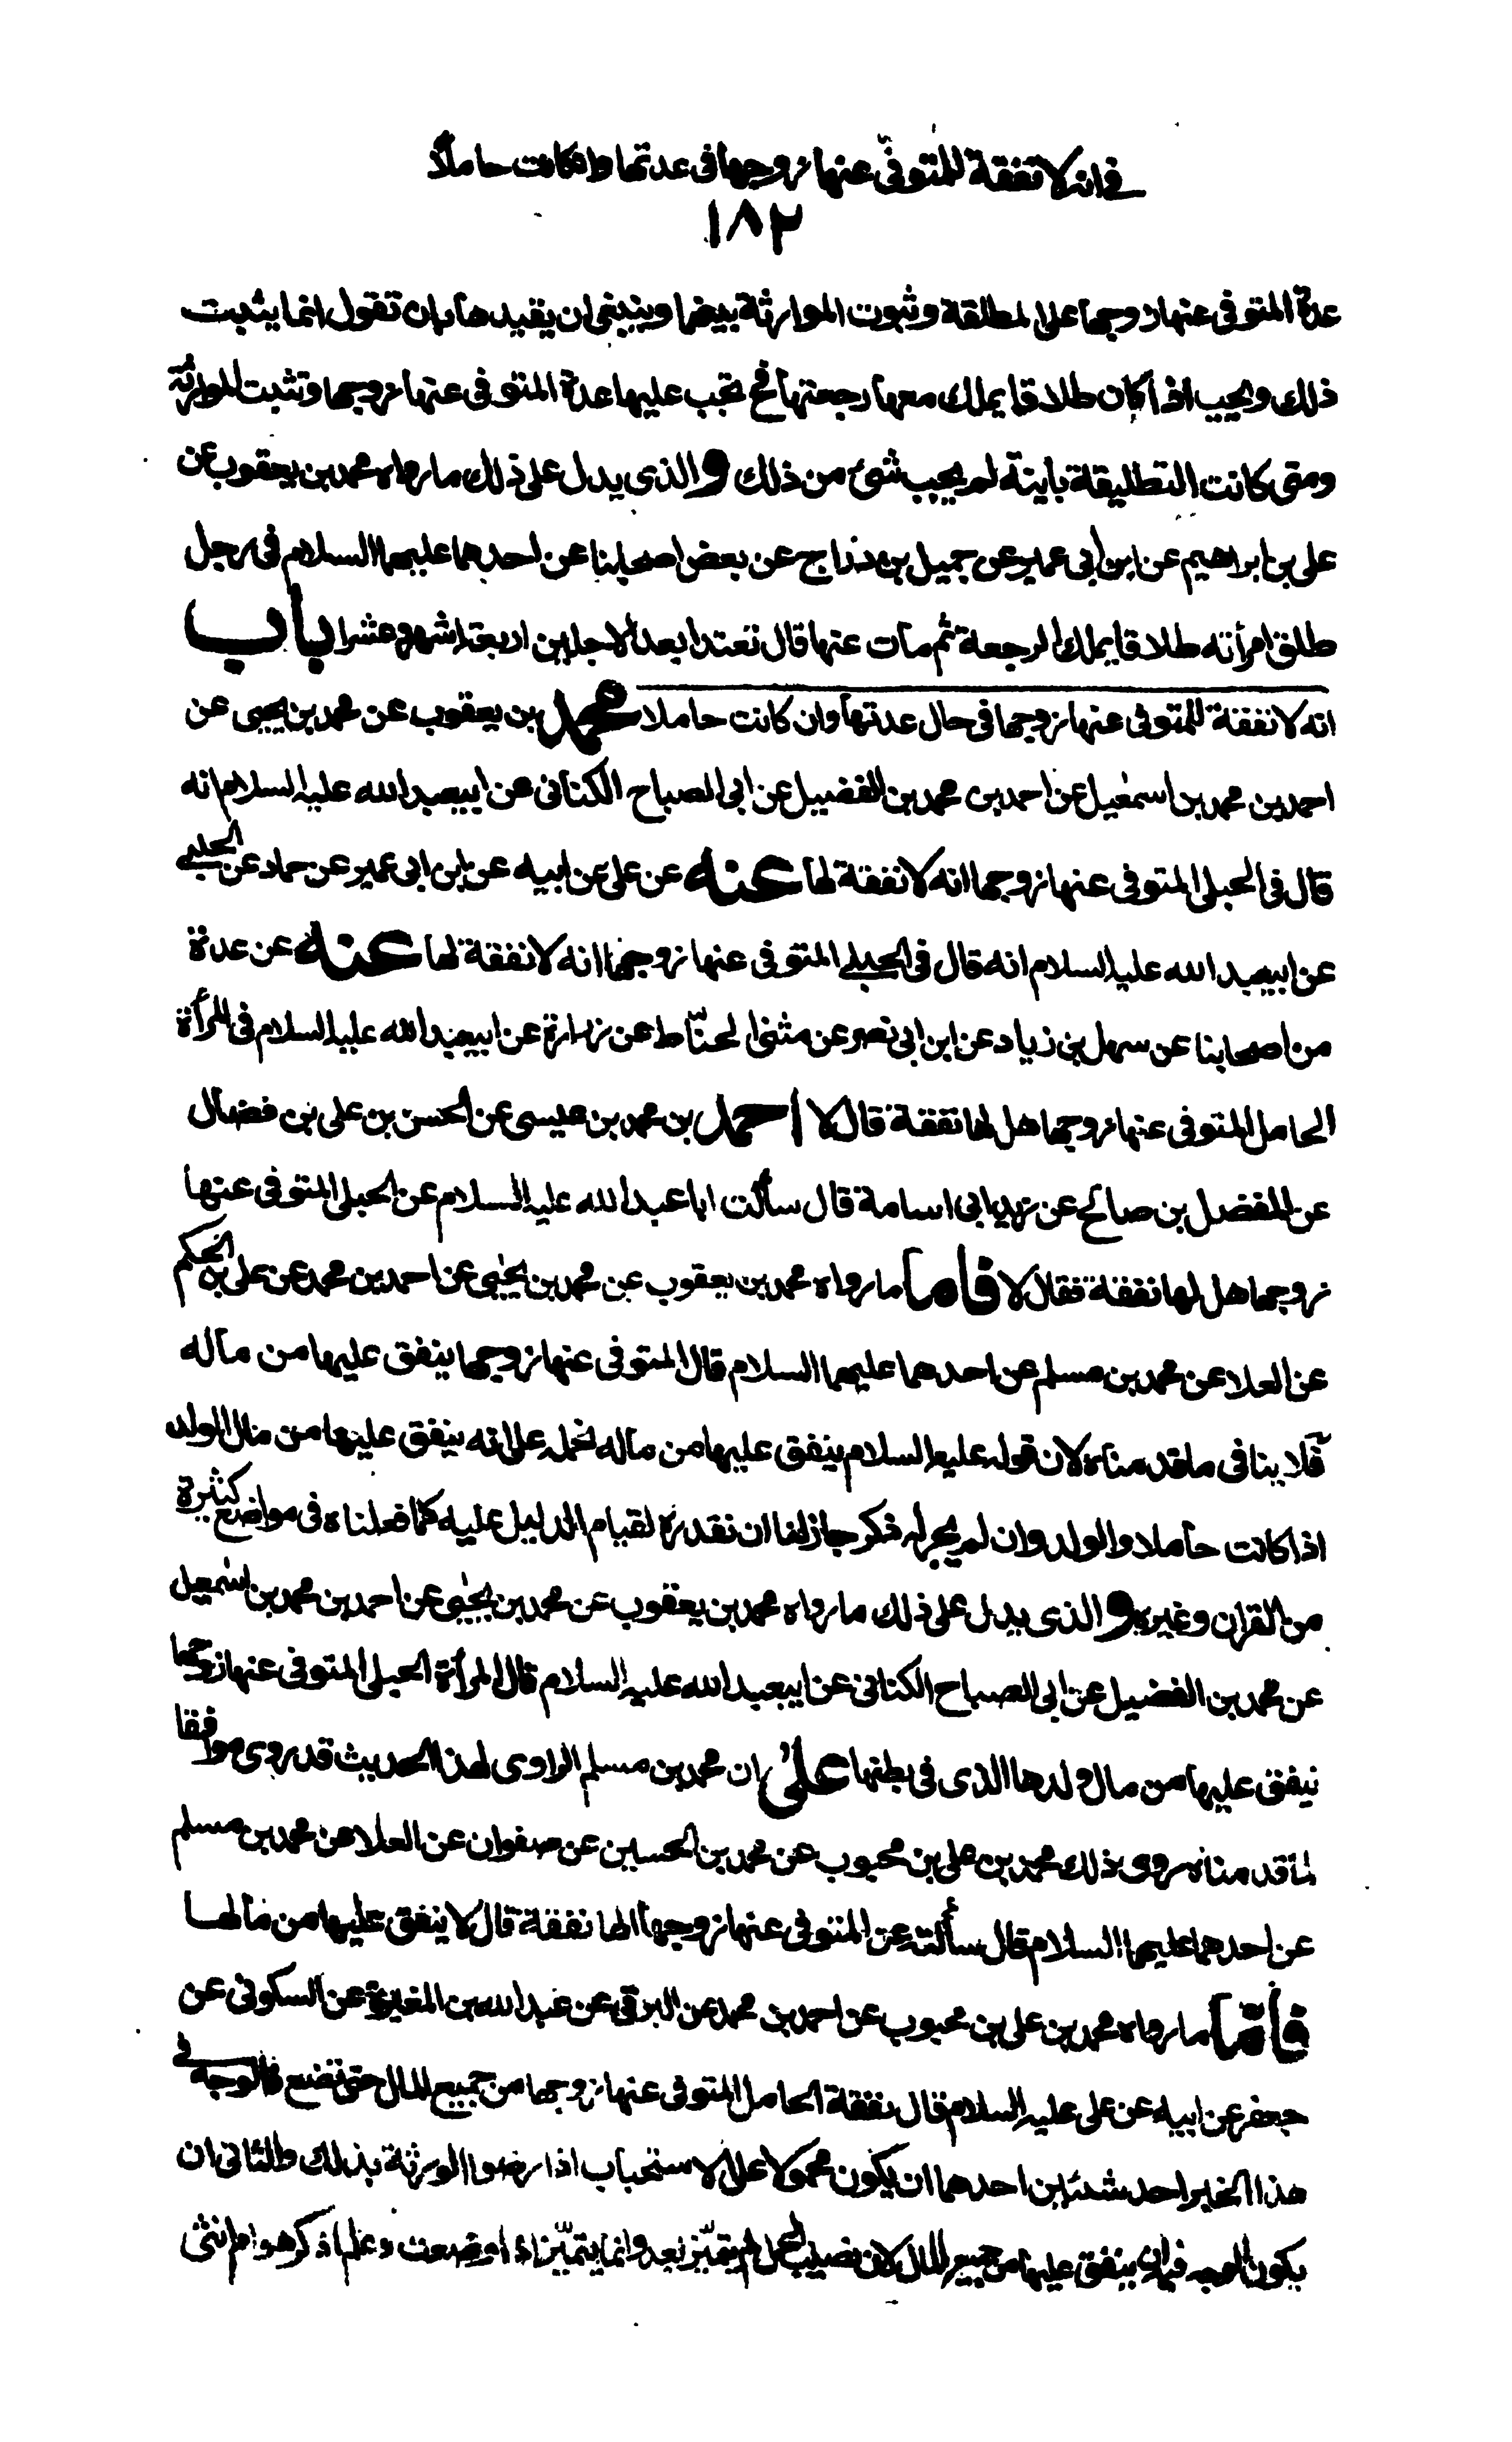 في انه لا نفقة للمتوفى عنها زوجها في عدتها وانكانت حاملا
١٨٢
عدة المتوفى عنها زوجها على المطلقة وثبوت الموارثة بينهما وينبغي ان يقيدها بان تقول انما يثبت
ذلك ويجب اذا كان طلاقا يملك معها رجعتها فح تجب عليها عدة المتوفى عنها زوجها وتثبت الموارثة
ومتى كانت التطليقة باينة لم يجب شئ من ذلك والذى يدل على ذلك ما رواه محمد بن يعقوب عن
على بن ابراهيم عن ابن ابى عمير عن جميل بن دراج عن بعض اصحابنا عن احدهما عليهما السلام فى رجل
طلق امرأته طلاقا يملك الرجعة ثم مات عنها قال تعتد ابعد الاجلين اربعة اشهر وعشرا باب
انه لا نفقة للمتوفى عنها زوجها فى حال عدتها وان كانت حاملا محمد بن يعقوب عن محمد بن يحيى عن
احمد بن محمد بن اسمعيل عن احمد بن محمد بن الفضيل عن ابى الصباح الكنانى عن ابيعبد الله عليه السلام انه
قال فى الحبلى المتوفى عنها زوجها انه لا نفقة لها عنه عن على عن ابيه عن ابن ابى عمير عن حماد عن الحلبي
عن ابيعبد الله عليه السلام انه قال فى الحبلي المتوفى عنها زوجها انه لا نفقة لها عنه عن عدة
من اصحابنا عن سهل بن زياد عن ابن ابى نصر عن مثنى الحنّاط عن زرارة عن ابيعبد الله عليه السلام فى المرأة
الحامل المتوفى عنها زوجها هل لها نفقة قال لا احمد بن محمد بن عيسى عن الحسن بن على بن فضال
عن المفضل بن صالح عن زيد ابى اسامة قال سألت ابا عبد الله عليه السلام عن الحبلى المتوفى عنها
زوجها هل لها نفقة فقال لا فاما ما رواه محمد بن يعقوب عن محمد بن يحيى عن احمد بن محمد عن على بن الحكم
عن العلا عن محمد بن مسلم عن احدهما عليهما السلام قال المتوفى عنها زوجها ينفق عليها من ماله
فلا ينافى ما قدمناه لان قوله عليه السلام ينفق عليها من ماله نحمله على انه ينفق عليها من مال الولد
اذا كانت حاملا والولد وان لم يجر له ذكر جاز لنا ان نقدره لقيام الدليل عليه كما فعلناه فى مواضع كثيرة
من القران وغيره والذى يدل على ذلك ما رواه محمد بن يعقوب عن محمد بن يحيى عن احمد بن محمد بن اسمعيل
عن محمد بن الفضيل عن ابى الصباح الكنانى عن ابيعبد الله عليه السلام قال المرأة الحبلى المتوفى عنها زوجها
ينفق عليها من مال ولدها الذى فى بطنها على ان محمد بن مسلم الراوى لهذا الحديث قد روى موافقا
لما قدمناه روى ذلك محمد بن على بن محبوب عن محمد بن الحسين عن صفوان عن العلا عن محمد بن مسلم
عن احدهما عليهما السلام قال سألته عن المتوفى عنها زوجها الها نفقة قال لا ينفق عليها من مالها
فأمّا ما رواه محمد بن على بن محبوب عن احمد بن محمد عن البرقى عن عبد الله بن المغيرة عن السكونى عن
جعفر عن ابيه عن على عليه السلام قال نفقة الحامل المتوفى عنها زوجها من جميع المال حتى تضع فالوجه في
هذا الخبر احد شيئين احدهما ان يكون محمولا على الاستحباب اذا رضوا الورثة بذلك والثانى ان
يكون الوجه فيه ان ينفق عليها من جميع المال لان نصيب الحمل لم يتميّز بعد وانما يتميّز اذا وضعت وعلم اذكر هو ام انثى